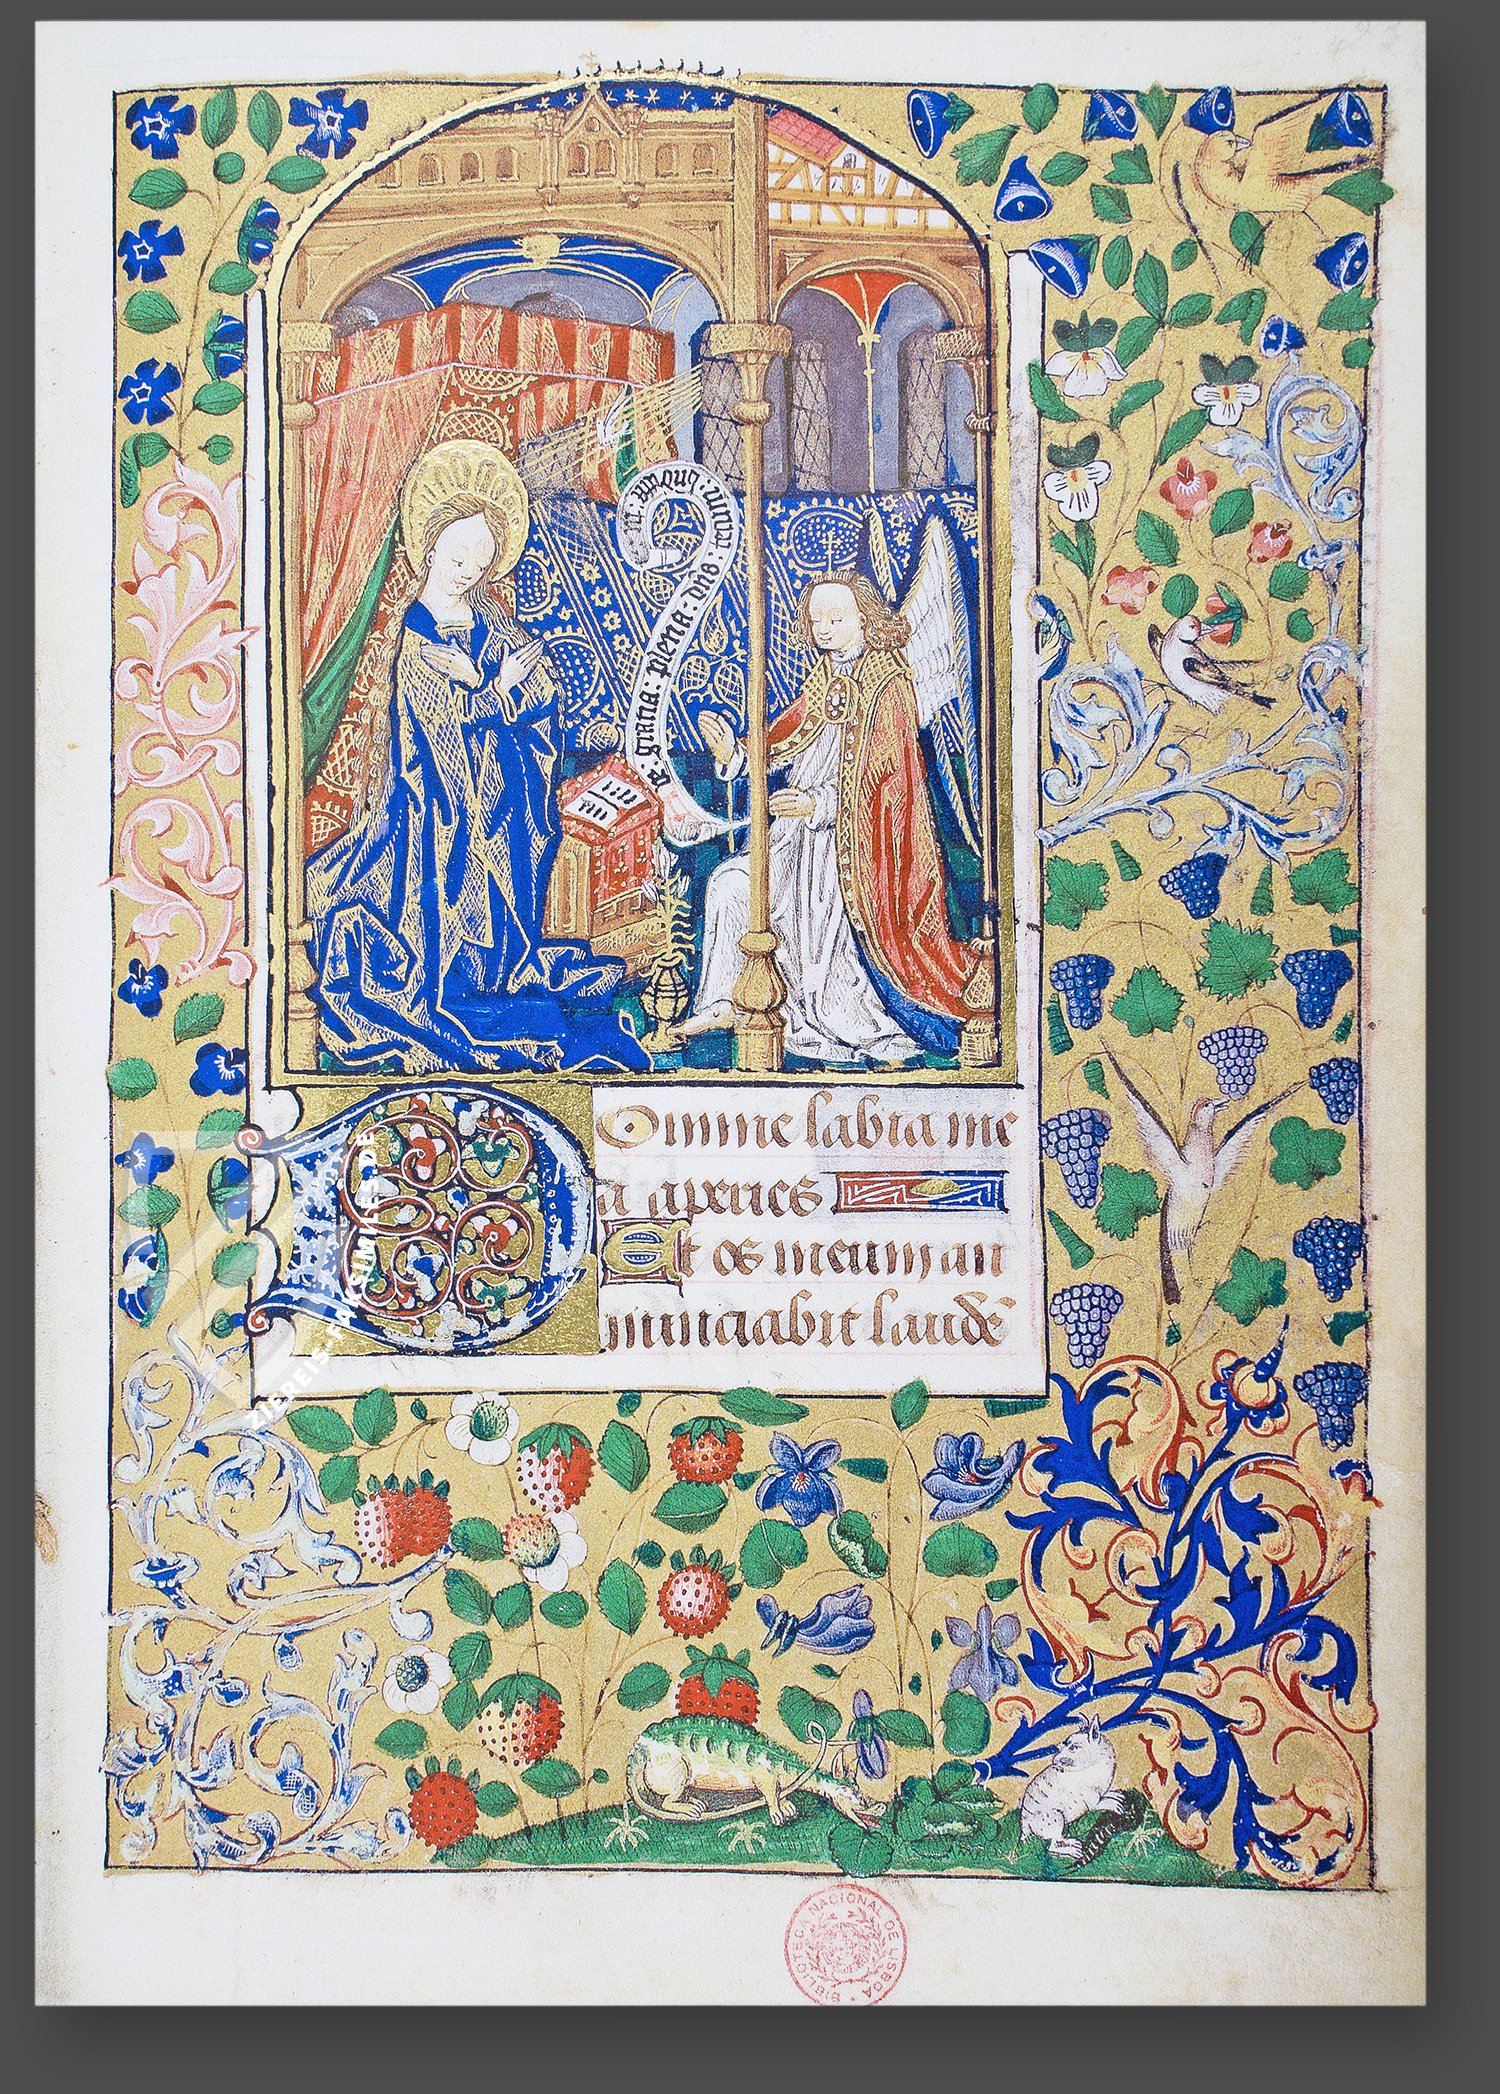 gratia · plena · dns · tecum ·
Domine labia me
a aperies
Et os meum an
nunciabit laudē
ZIEREIS-FAKSIMILES.DE
BIBLIOTECA NACIONAL DE LISBOA